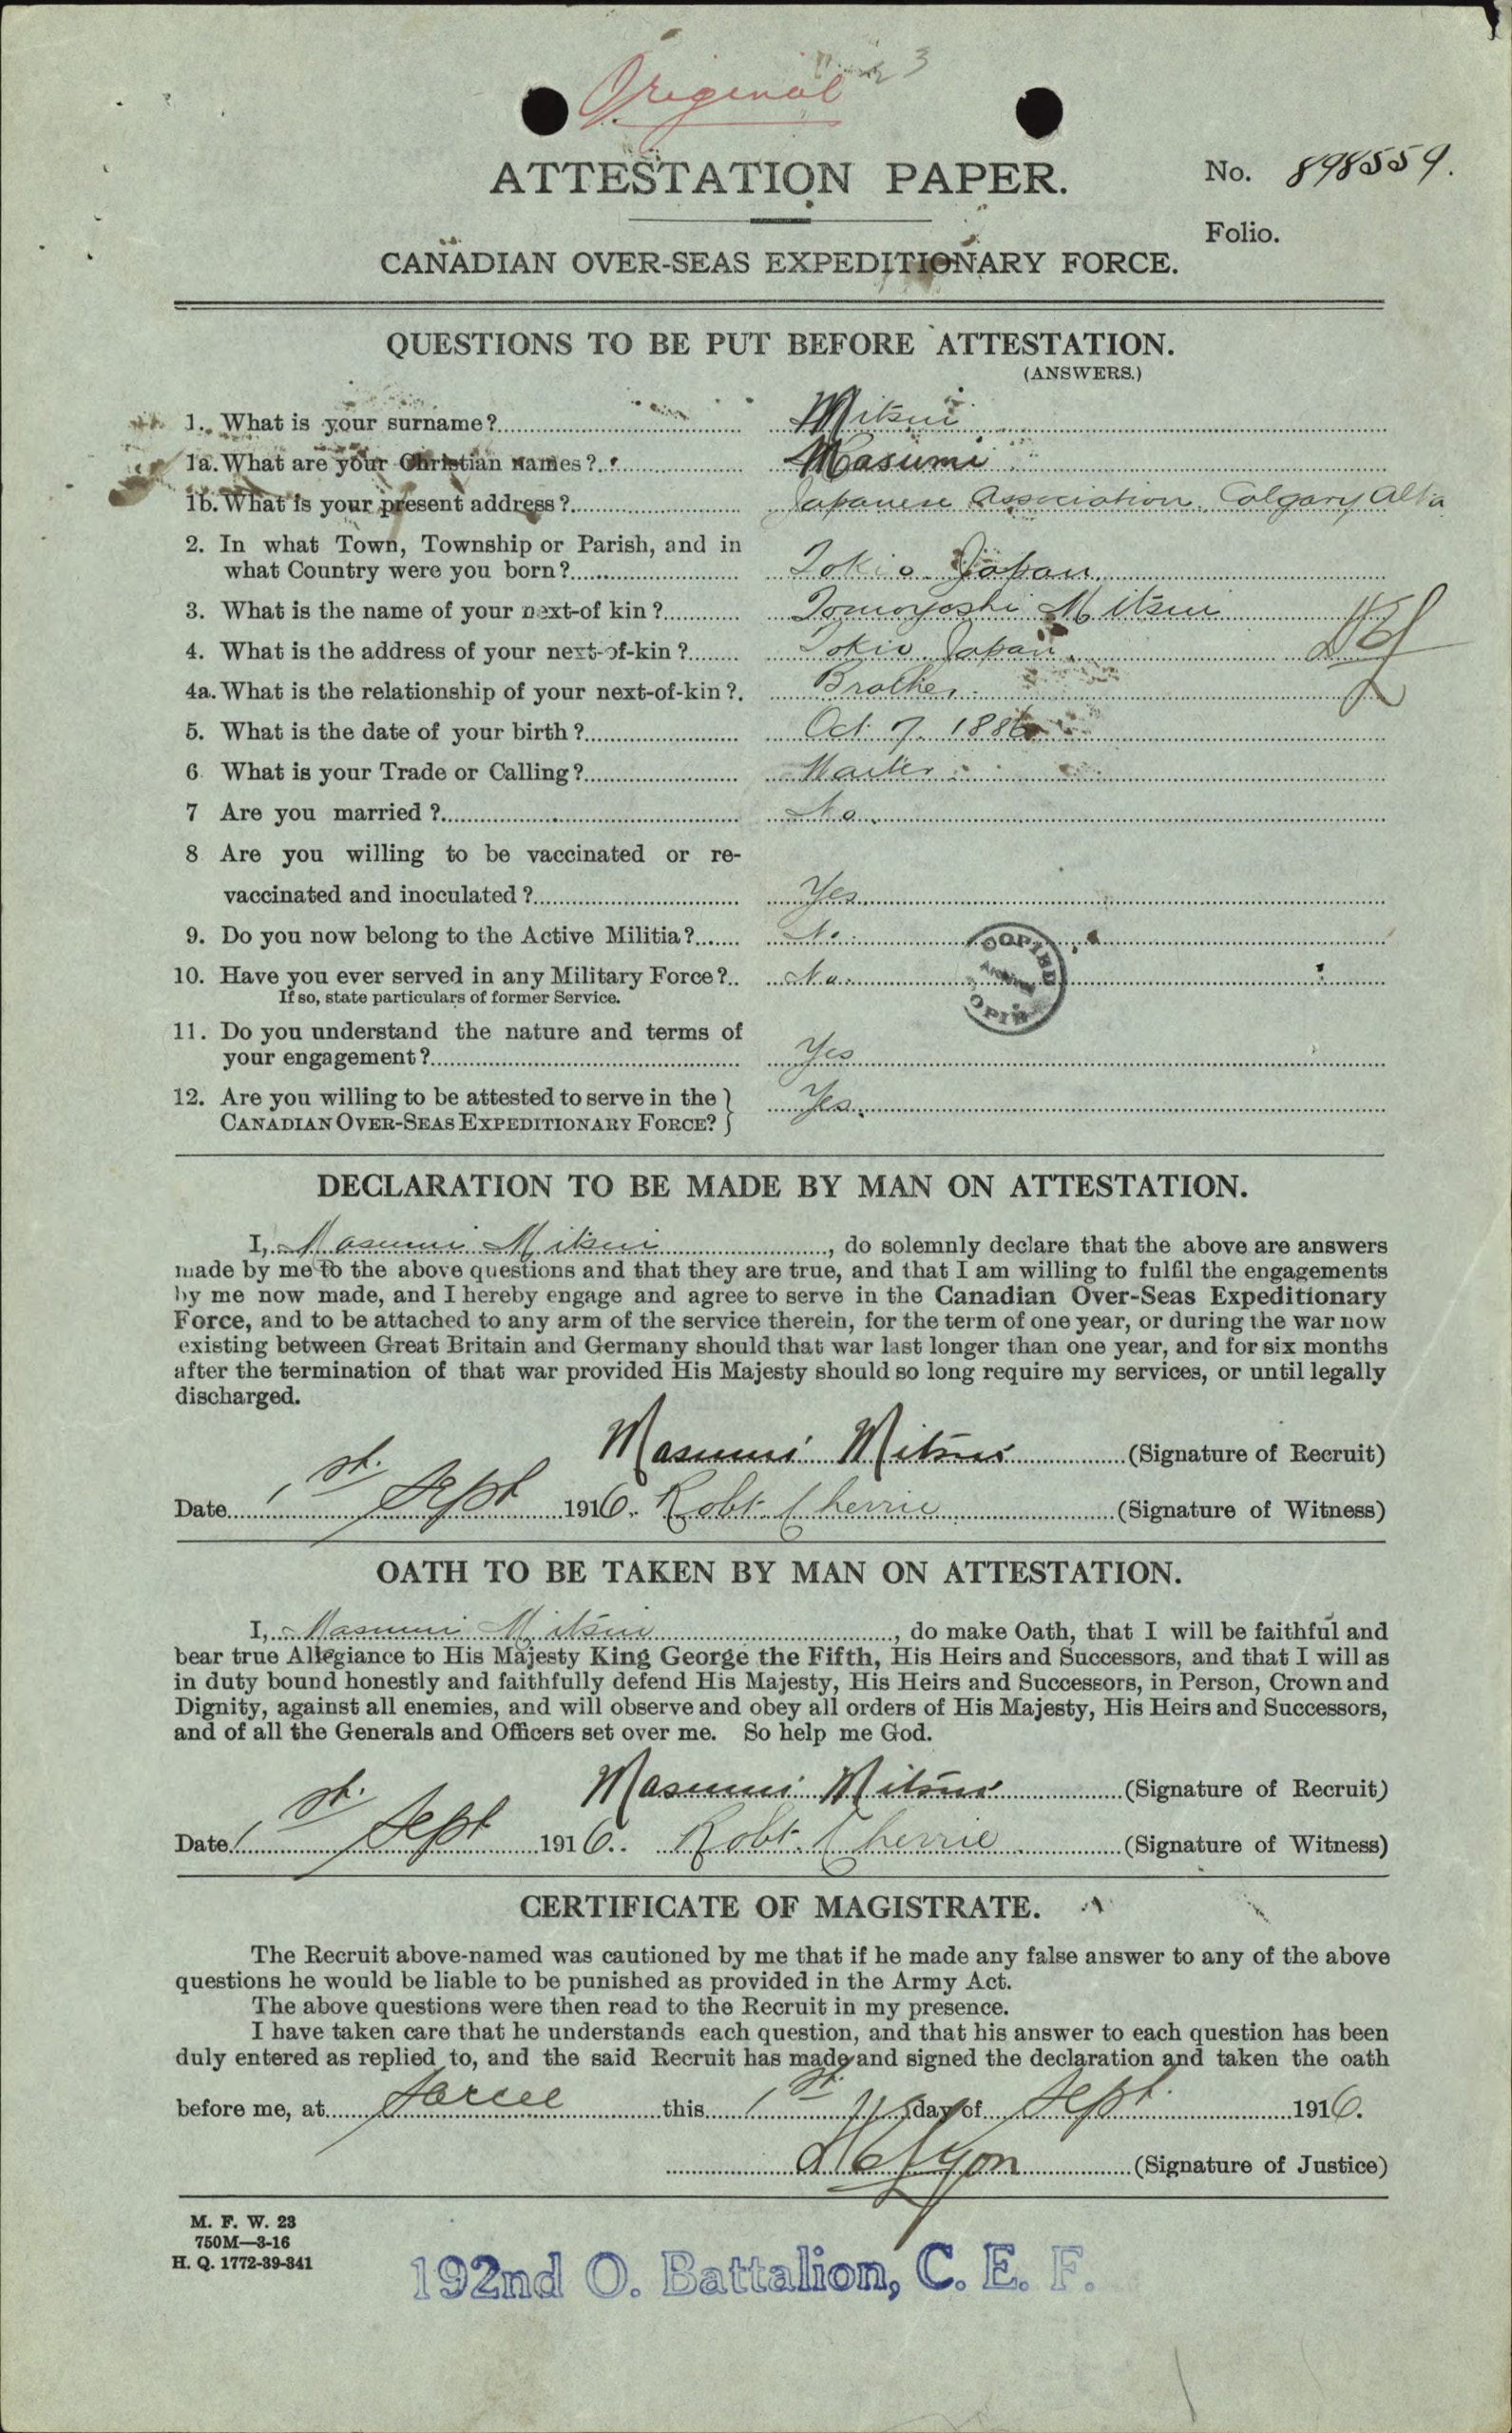 Original
23
ATTESTATION PAPER.
No. 898559.
Folio.
CANADIAN OVER-SEAS EXPEDITIONARY FORCE.
QUESTIONS TO BE PUT BEFORE ATTESTATION.
(ANSWERS.)
1. What is your surname? Mitsui
1a. What are your Christian names? Masumi
1b. What is your present address? Japanese Association, Calgary Alta
2. In what Town, Township or Parish, and in
what Country were you born? Tokio Japan
3. What is the name of your next-of kin? Tomoyoshi Mitsui
4. What is the address of your next-of-kin? Tokio Japan
4a. What is the relationship of your next-of-kin? Brother
5. What is the date of your birth? Oct. 7. 1886
6 What is your Trade or Calling? Waiter
7 Are you married? No
8 Are you willing to be vaccinated or re-
vaccinated and inoculated? Yes
9. Do you now belong to the Active Militia? No
10. Have you ever served in any Military Force? No
If so, state particulars of former Service.
COPIED
11. Do you understand the nature and terms of
your engagement? Yes
12. Are you willing to be attested to serve in the
CANADIAN OVER-SEAS EXPEDITIONARY FORCE? Yes.
DECLARATION TO BE MADE BY MAN ON ATTESTATION.
I, Masumi Mitsui, do solemnly declare that the above are answers
made by me to the above questions and that they are true, and that I am willing to fulfil the engagements
by me now made, and I hereby engage and agree to serve in the Canadian Over-Seas Expeditionary
Force, and to be attached to any arm of the service therein, for the term of one year, or during the war now
existing between Great Britain and Germany should that war last longer than one year, and for six months
after the termination of that war provided His Majesty should so long require my services, or until legally
discharged.
Masumi Mitsui (Signature of Recruit)
Date 1st Sept 1916. Robt. Cherrie (Signature of Witness)
OATH TO BE TAKEN BY MAN ON ATTESTATION.
I, Masumi Mitsui, do make Oath, that I will be faithful and
bear true Allegiance to His Majesty King George the Fifth, His Heirs and Successors, and that I will as
in duty bound honestly and faithfully defend His Majesty, His Heirs and Successors, in Person, Crown and
Dignity, against all enemies, and will observe and obey all orders of His Majesty, His Heirs and Successors,
and of all the Generals and Officers set over me. So help me God.
Masumi Mitsui (Signature of Recruit)
Date 1st Sept 1916. Robt. Cherrie (Signature of Witness)
CERTIFICATE OF MAGISTRATE.
The Recruit above-named was cautioned by me that if he made any false answer to any of the above
questions he would be liable to be punished as provided in the Army Act.
The above questions were then read to the Recruit in my presence.
I have taken care that he understands each question, and that his answer to each question has been
duly entered as replied to, and the said Recruit has made and signed the declaration and taken the oath
before me, at Sarcee this 1st day of Sept. 1916.
(Signature of Justice)
M. F. W. 23
750M—3-16
H. Q. 1772-39-341
192nd O. Battalion, C. E. F.